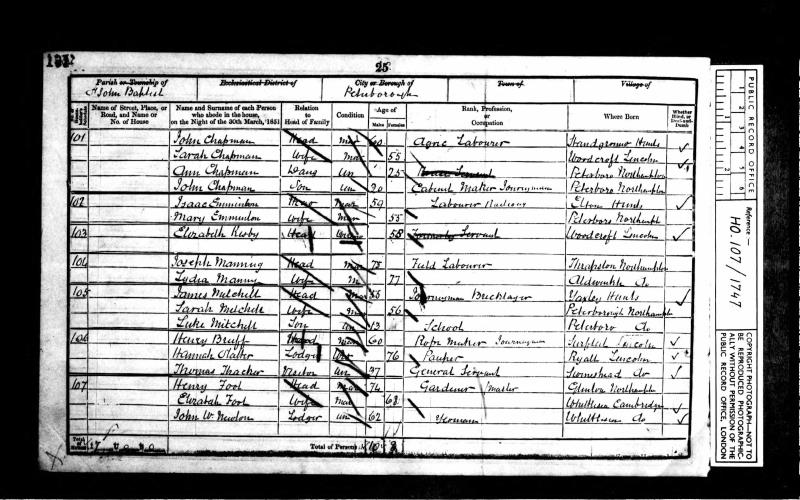 25
Parish or Township of
St John Baptist
Ecclesiastical District of
City or Borough of
Peterborough
Town of
Village of
Name of Street, Place, or Road, and Name or No. of House
Name and Surname of each Person who abode in the house, on the Night of the 30th March, 1851
Relation to Head of Family
Condition
Age of
Males Females
Rank, Profession, or Occupation
Where Born
Whether Blind, or Deaf-and-Dumb
101 John Chapman Head Mar 60 Agric Labourer Hunts
Sarah Chapman Wife Mar 55 Woodcroft Lincoln
Ann Chapman Daug Un 25 Peterboro Northampton
John Chapman Son Un 20 Cabinet Maker Journeyman Peterboro Northampton
102 Isaac 59 Labourer Elton Hunts
Mary Wife Mar 55 Peterboro Northampt
103 Elizabeth Head 58 Formerly Servant Woodcroft Lincoln
104 Joseph Manning Head Mar 78 Field Labourer Thrapston Northampton
Lydia Manning Wife M 77 Aldwinkle Do
105 James Mitchell Head Mar Journeyman Bricklayer Yaxley Hunts
Sarah Mitchell Wife 56 Peterborough Northampt
Luke Mitchell Son Un 13 School Peterboro Do
106 Henry Head Mar 60 Rope Maker Journeyman Surfleet Lincoln
Hannah Lodger 76 Pauper Ryall Lincoln
Thomas Thacker Un 37 General Servant Do
107 Henry Foot Head Mar 74 Gardener Master Northampt
Elizabeth Foot Wife Mar 68 Whittlesea Cambridge
John W. Newton Lodger Un 62 Yeoman Whittlesea Do
Total of Persons
PUBLIC RECORD OFFICE
1 2 3 4 5 6
Reference:-
HO. 107/1747
COPYRIGHT PHOTOGRAPH—NOT TO BE REPRODUCED PHOTOGRAPHICALLY WITHOUT PERMISSION OF THE PUBLIC RECORD OFFICE, LONDON